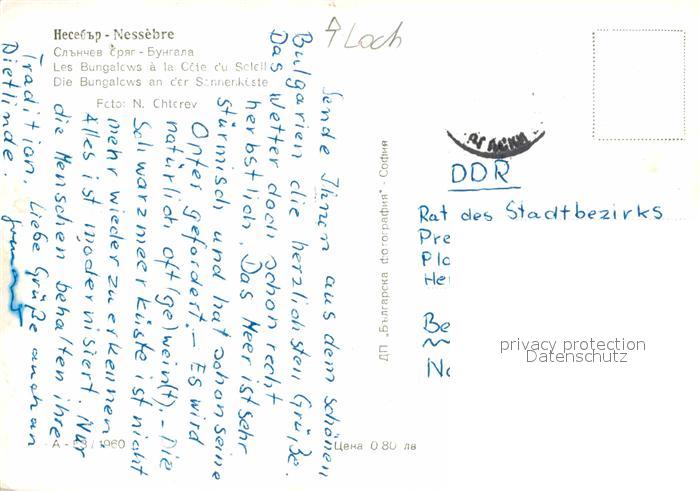 Несебър - Nessèbre
Слънчев бряг - Бунгала
Les Bungalows à la Côte du Soleil
Die Bungalows an der Sonnenküste
Foto: N. Chterev
4 Loch
Sende Ihnen aus dem schönen
Bulgarien die herzlichsten Grüße.
Das Wetter doch schon recht
herbstlich. Das Meer ist sehr
stürmisch und hat schon seine
Opfer gefordert. – Es wird
natürlich oft (ge)wein(t). – Die
Schwarzmeerküste ist nicht
mehr wieder zu erkennen.
Alles ist modernisiert. Nur
die Menschen behalten ihre
Tradition. Liebe Grüße auch an
Dietlinde.
ДП „Българска фотография" - София
DDR
Rat des Stadtbezirks
Pre
Pla
Hei
Be
No
privacy protection
Datenschutz
А - 53 / 1960
Цена 0.80 лв